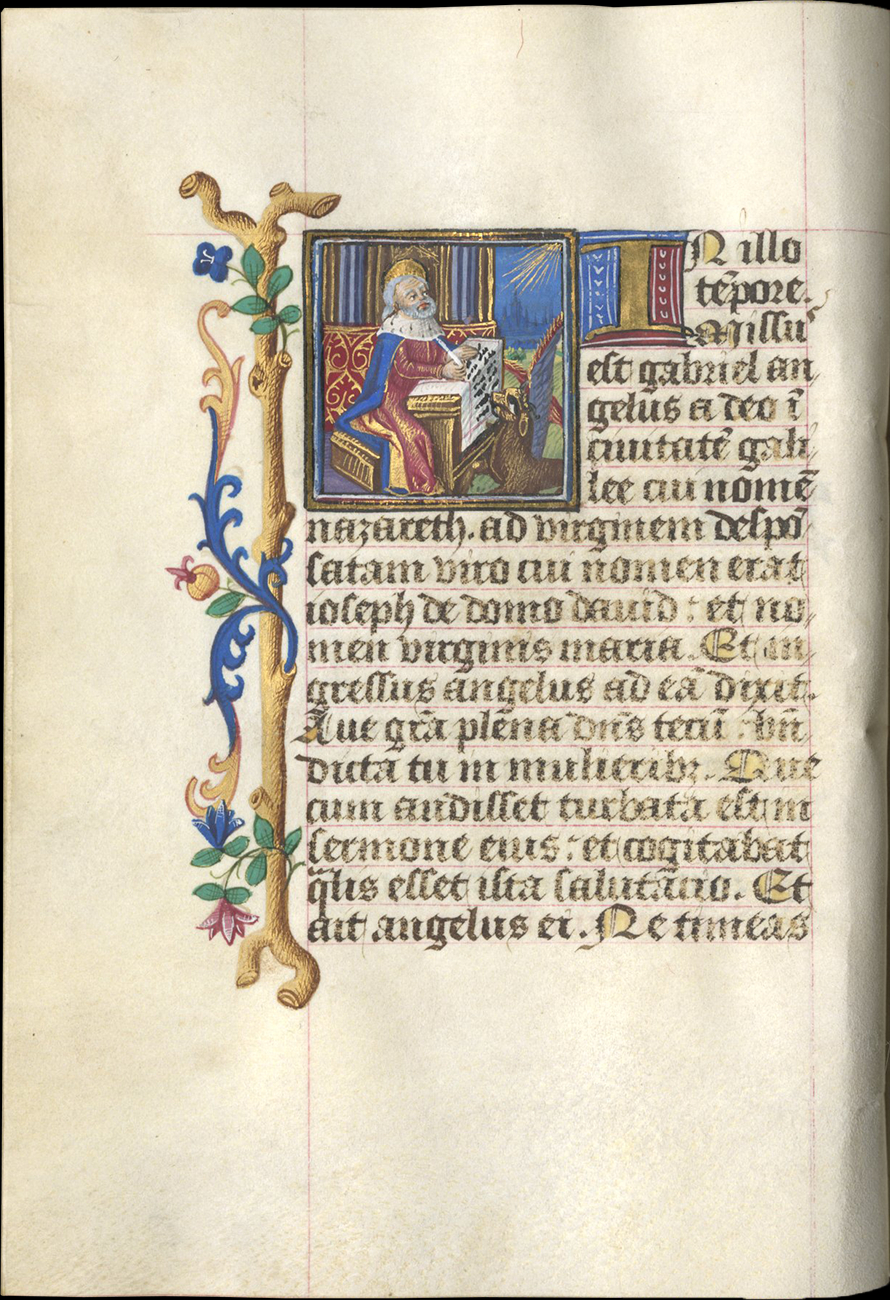 IN illo
te̅pore.
Missus
est gabriel an
gelus a deo i̅
ciuitate̅ gali
lee cui nome̅
nazareth. ad virginem despo̅
satam viro cui nomen erat
ioseph de domo dauid : et no
men virginis maria. Et in
gressus angelus ad ea̅ dixit.
Aue gr̅a plena dn̅s tecu̅ : bn̅
dicta tu in mulieribꝫ. Que
cum audisset turbata est in
sermone eius : et cogitabat
q̅lis esset ista saluta̅cio. Et
ait angelus ei. Ne timeas